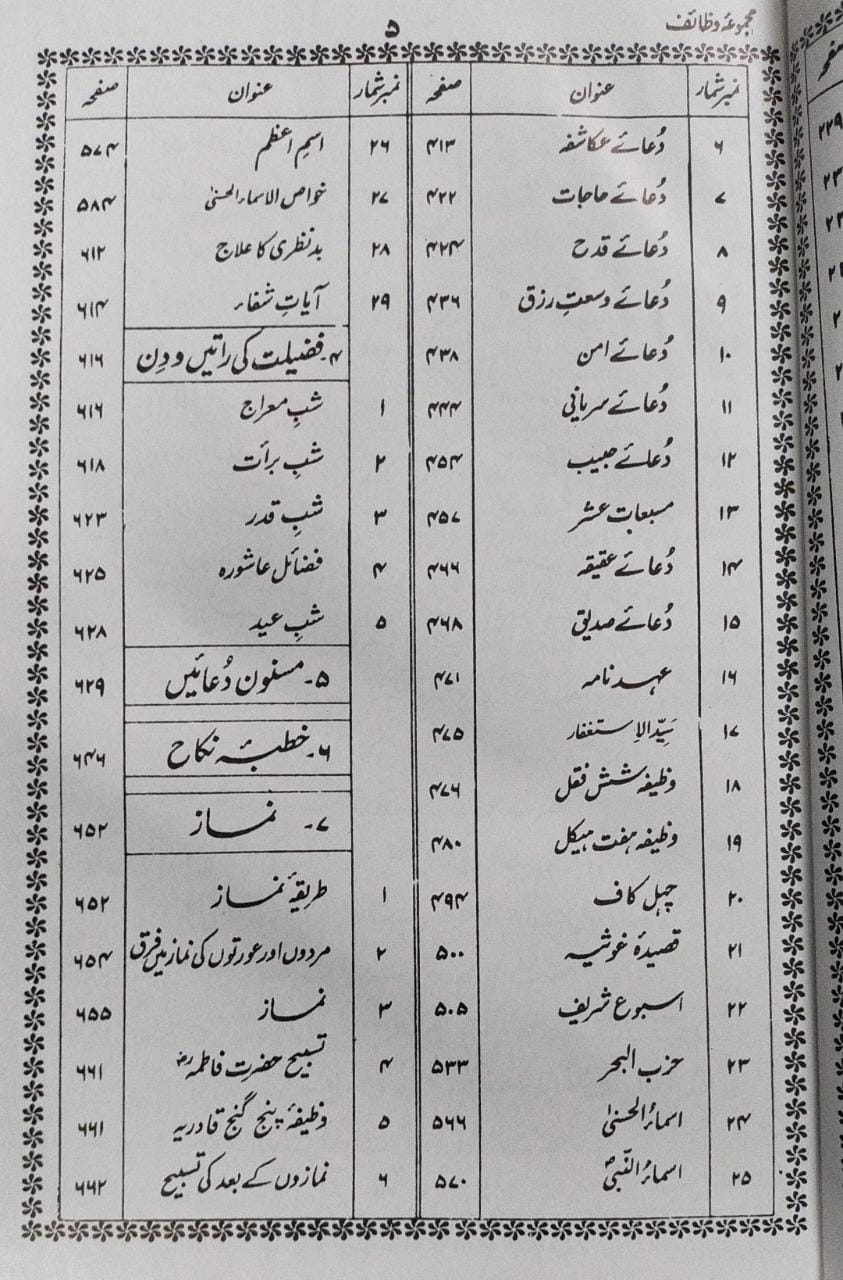 مجموعۂ وظائف
۵
نمبر شمار عنوان صفحہ
۶ دُعائے عکاشہ ۴۱۳
۷ دُعائے حاجات ۴۲۲
۸ دُعائے قدح ۴۲۴
۹ دُعائے وسعتِ رزق ۴۳۶
۱۰ دُعائے امن ۴۳۸
۱۱ دُعائے سریانی ۴۴۴
۱۲ دُعائے حبیب ۴۵۴
۱۳ مسبعات عشر ۴۵۷
۱۴ دُعائے عقیقہ ۴۶۶
۱۵ دُعائے صدیق ۴۶۸
۱۶ عہد نامہ ۴۷۱
۱۷ سَیِّدُ الاِستغفار ۴۷۵
۱۸ وظیفہ شش قفل ۴۷۶
۱۹ وظیفہ ہفت ہیکل ۴۸۰
۲۰ چہل کاف ۴۹۴
۲۱ قصیدۂ غوثیہ ۵۰۰
۲۲ اسبوع شریف ۵۰۵
۲۳ حزب البحر ۵۳۳
۲۴ اسماءُ الحسنیٰ ۵۶۶
۲۵ اسماءُ النَّبیؐ ۵۷۰
نمبر شمار عنوان صفحہ
۲۶ اسمِ اعظم ۵۷۴
۲۷ خواص الاسماء الحسنیٰ ۵۸۴
۲۸ بدنظری کا علاج ۶۱۲
۲۹ آیاتِ شفاء ۶۱۴
۴۔ فضیلت کی راتیں و دِن ۶۱۶
۱ شبِ معراج ۶۱۶
۲ شبِ برأت ۶۱۸
۳ شبِ قدر ۶۲۳
۴ فضائل عاشورہ ۶۲۵
۵ شبِ عید ۶۲۸
۵۔ مسنون دُعائیں ۶۲۹
۶۔ خطبۂ نکاح ۶۴۶
۷۔ نماز ۶۵۲
۱ طریقۂ نماز ۶۵۲
۲ مردوں اور عورتوں کی نماز میں فرق ۶۵۴
۳ نماز ۶۵۵
۴ تسبیح حضرت فاطمہؓ ۶۶۱
۵ وظیفۂ پنج گنج قادریہ ۶۶۱
۶ نمازوں کے بعد کی تسبیح ۶۶۲
صفحہ
۲۲۹